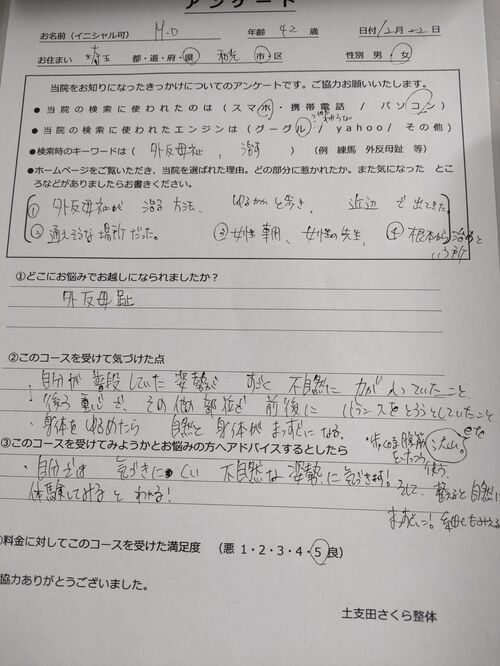 アンケート
お名前（イニシャル可） M.O 年齢 42 歳 日付 12月22日
お住まい 埼玉 都・道・府・県 和光 市・区 性別 男・女
当院をお知りになったきっかけについてのアンケートです。ご協力お願いいたします。
● 当院の検索に使われたのは（スマホ・携帯電話 / パソコン）
● 当院の検索に使われたエンジンは（グーグル / yahoo/ その他）
●検索時のキーワードは（ 外反母祉、治す ） （例 練馬 外反母趾 等）
●ホームページをご覧いただき、当院を選ばれた理由。どの部分に惹かれたか。また気になった ところなどがありましたらお書きください。
① 外反母祉が 治る 方法、 ゆるかかと歩き、 近辺 で 出てきた。
② 通えそうな場所だった。 ③ 女性専用、女性の先生、 ④ 根本から治ると
いう所
①どこにお悩みでお越しになられましたか？
外反母趾
②このコースを受けて気づけた点
・自分が普段していた姿勢が すごく 不自然に 力が入っていたこと
・後ろ重心で、その他の部位で 前後に バランスをとろうとしていたこと
・身体をゆるめたら 自然と 身体がまっすぐになる。
③このコースを受けてみようかとお悩みの方へアドバイスするとしたら
・自分では 気づきにくい 不自然な姿勢に気づきます！
体験してみると わかる！
そして、整えると自然に
まっすぐに！
料金に対してこのコースを受けた満足度 （悪 1・2・3・4・5 良）
協力ありがとうございました。
土支田さくら整体